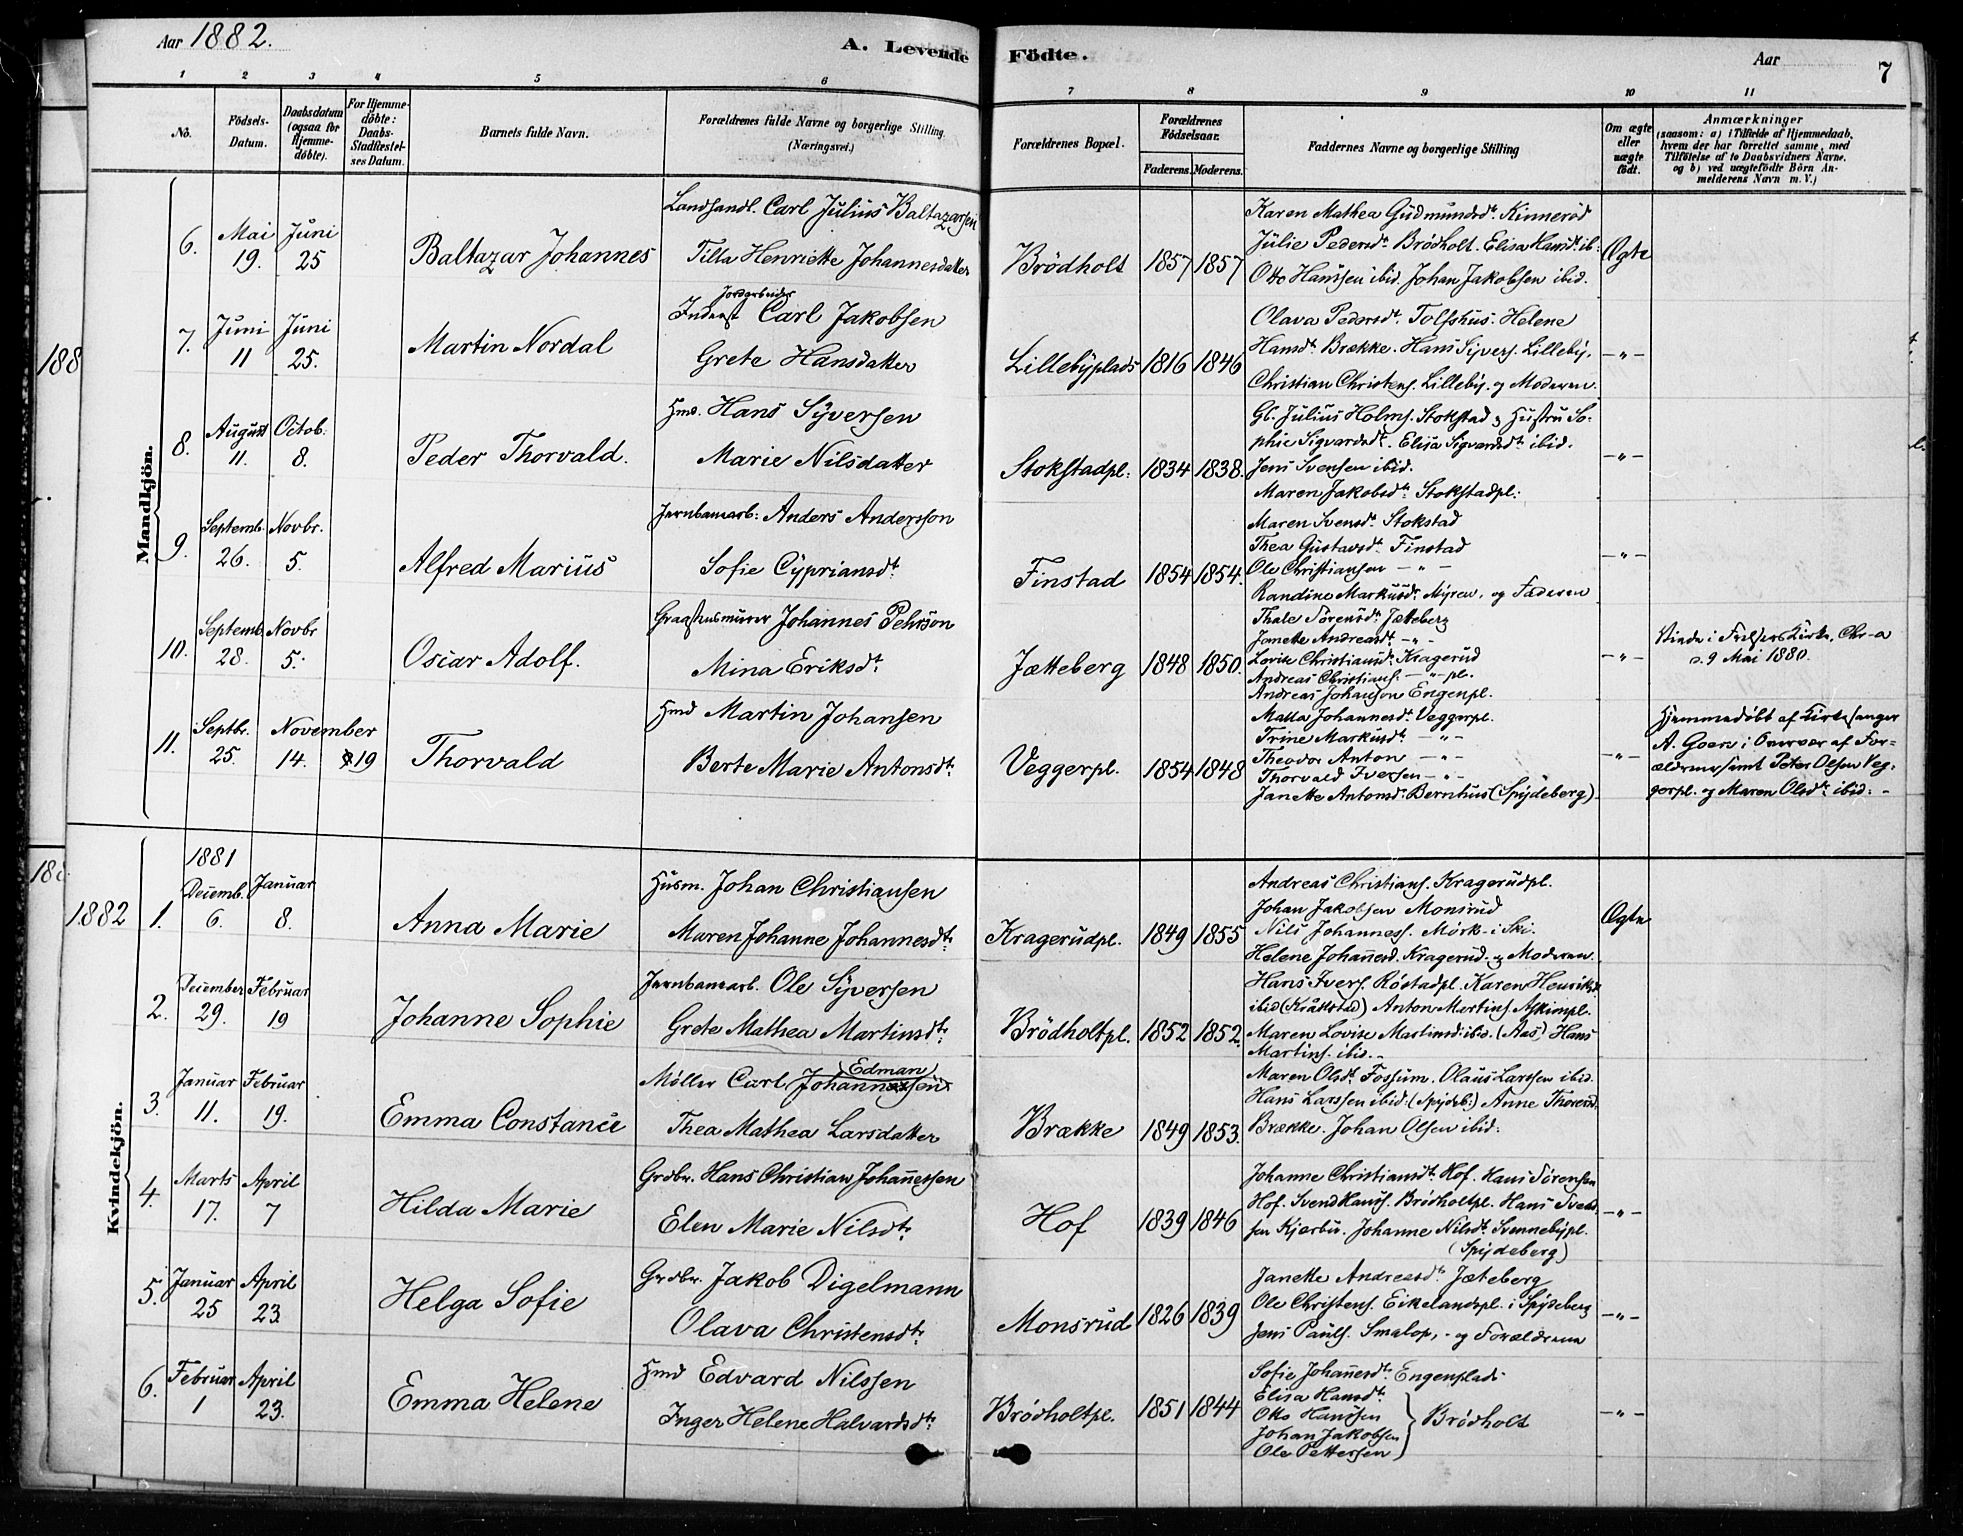 Aar 1882.
A. Levende Födte.
Aar
7
1 2 3 4 5 6 7 8 9 10 11
No.
Födsels-
Datum.
Daabsdatum
(ogsaa for
Hjemme-
døbte).
For Hjemme-
døbte:
Daabs-
Stadfæstel-
ses Datum.
Barnets fulde Navn.
Forældrenes fulde Navne og borgerlige Stilling.
(Næringsvei.)
Forældrenes Bopæl.
Forældrenes
Födselsaar.
Faderens. Moderens.
Faddernes Navne og borgerlige Stilling
Om ægte
eller
uægte
født.
Anmærkninger
(saasom: a) i Tilfælde af Hjemmedaab,
hvem der har forrettet samme, med
Tilföielse af to Daabsvidners Navne,
og b) ved uægtefödte Börn An-
melderens Navn m. V.)
188
Mandkjön.
6.
Mai
19.
Juni
25
Baltazar Johannes
Landhandl. Carl Julius Baltazarsen
Tilla Henriette Johannesdatter
Brödholt
1857 1857
Karen Mathea Gudmundsdt. Kinneröd
Julie Pedersdt. Brödholt. Elisa Hansdt. ib:
Otto Hanssen ibid. Johan Jakobsen ibid.
Ægte
7.
Juni
11
Juni
25.
Martin Nordal
Jordarbeider
Inderst Carl Jakobsen
Grete Hansdatter
Lillebyplads
1816 1846
Olava Pedersdt. Tolfshus. Helene
Hansdt. Brække. Hans Syvers. Lilleby.
Christian Christens. Lilleby. og Moderen.
-"-
8.
August
11.
Octob:
8.
Peder Thorvald.
Hmd. Hans Syversen
Marie Nilsdatter
Stokstadpl:
1834 1838.
Gb. Julius Holms. Stokstad og Hustru So-
phie Sigvardsdt. Elisa Sigvardsdt. ibid.
Jens Svensen ibid.
Maren Jakobsdt. Stokstadpl:
-"-
9.
Septemb.
26.
Novbr.
5.
Alfred Marius
Jernbanearb: Anders Andersson
Sofie Cypriansdt.
Finstad
1854 1854.
Maren Svensdt. Stokstad
Thea Gustavsdt. Finstad
Ole Christiansen -"-
Randine Markusdt. Myren, og Faderen
-"-
10.
Septemb.
28.
Novbr
5.
Oscar Adolf.
Johannes Pehrson
Mina Eriksdt.
Jætteberg
1848 1850.
Thale Sörensdt. Jætteberg
Janette Andreasdt. -"-
Lovise Christiansdt. Kragerud
Andreas Christians. -"- pl.
Andreas Johanson Engenpl.
-"-
Viede i Frelsers Kirke, Chr-a
d. 9 Mai 1880.
11.
Septbr.
25.
November
14.
19
Thorvald
Hmd Martin Johansen
Berte Marie Antonsdt.
Veggerpl.
1854 1848
Matta Johannesdt. Veggerpl.
Trine Markusdt. -"-
Theodor Anton -"-
Thorvald Iversen -"-
Janette Antonsd: Bernhus (Spydeberg)
-"-
Hjemmedöbt af Kirkesanger
A. Goern i Overvær af For-
ældrene samt Peter Olsen Veg-
gerpl. og Maren Olsdt. ibid: -
188
1882
Kvindekjön.
1.
1881
Decemb.
6.
Januar
8.
Anna Marie
Husm. Johan Christiansen
Maren Johanne Johannesdt.
Kragerudpl.
1849 1855
Andreas Christians. Kragerudpl.
Johan Jakobsen Monsrud
Nils Johanness. Mörk i Ski.
Helene Johannesd. Kragerud. og Moderen
Ægte
2.
December
29.
Februar
19
Johanne Sophie
Jernbanearb. Ole Syversen
Grete Mathea Martinsdt.
Brödholtpl.
1852 1852.
Hans Ivers. Röstadpl. Karen Henriksd.
ibid (Kraakstad) Anton Martins. Askimpl.
Maren Lovise Martinsd: ibid. (Aas) Hans
Martins. ibid.
3.
Januar
11.
Februar
19.
Emma Constance
Edman
Møller Carl Johannessen
Thea Mathea Larsdatter
Brække
1849 1853.
Maren Olsdt. Fossum. Olaus Larssen ibid.
Hans Larssen ibid: (Spydeb:) Anne Thoresd.
Brække. Johan Olsen ibid:
4.
Marts
17.
April
7
Hilda Marie
Grdbr. Hans Christian Johannessen
Elen Marie Nilsdt.
Hof
1839 1846
Johanne Christiansdt. Hof. Hans Sörensen
Hof. Svend Hans. Brödholtpl. Hans Svend-
sen Kjærbu. Johanne Nilsdt. Svennebypl.
(Spydeberg)
-"-
5.
Januar
25
April
23.
Helga Sofie
Grdbr. Jakob Digelmann
Olava Christensdt.
Monsrud
1826 1839
Janette Andreasdt. Jæteberg
Ole Christens. Eikelandspl. i Spydeberg
Jens Pauls. Smalop, - og Forældrene
-"-
6.
Februar
1
April
23.
Emma Helene
Hmd Edvard Nilssen
Inger Helene Halvardsdt.
Brödholtpl.
1851 1844
Sofie Johannesdt. Engenplads
Elisa Hansdt.
Otto Hanssen
Johan Jakobsen
Ole Pettersen
Brödholt
-"-